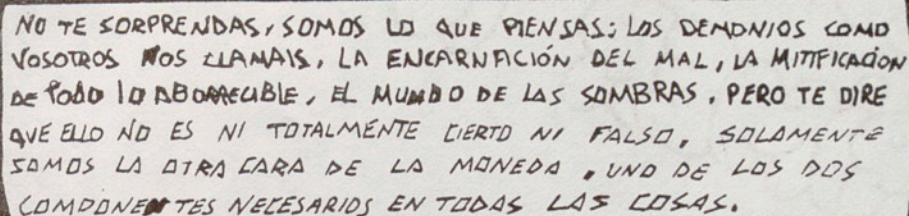 NO TE SORPRENDAS, SOMOS LO QUE PIENSAS; LOS DEMONIOS COMO
VOSOTROS NOS LLAMAIS, LA ENCARNACIÓN DEL MAL, LA MITIFICACION
DE TODO LO ABORRECIBLE, EL MUNDO DE LAS SOMBRAS. PERO TE DIRE
QUE ELLO NO ES NI TOTALMENTE CIERTO NI FALSO, SOLAMENTE
SOMOS LA OTRA CARA DE LA MONEDA, UNO DE LOS DOS
COMPONENTES NECESARIOS EN TODAS LAS COSAS.